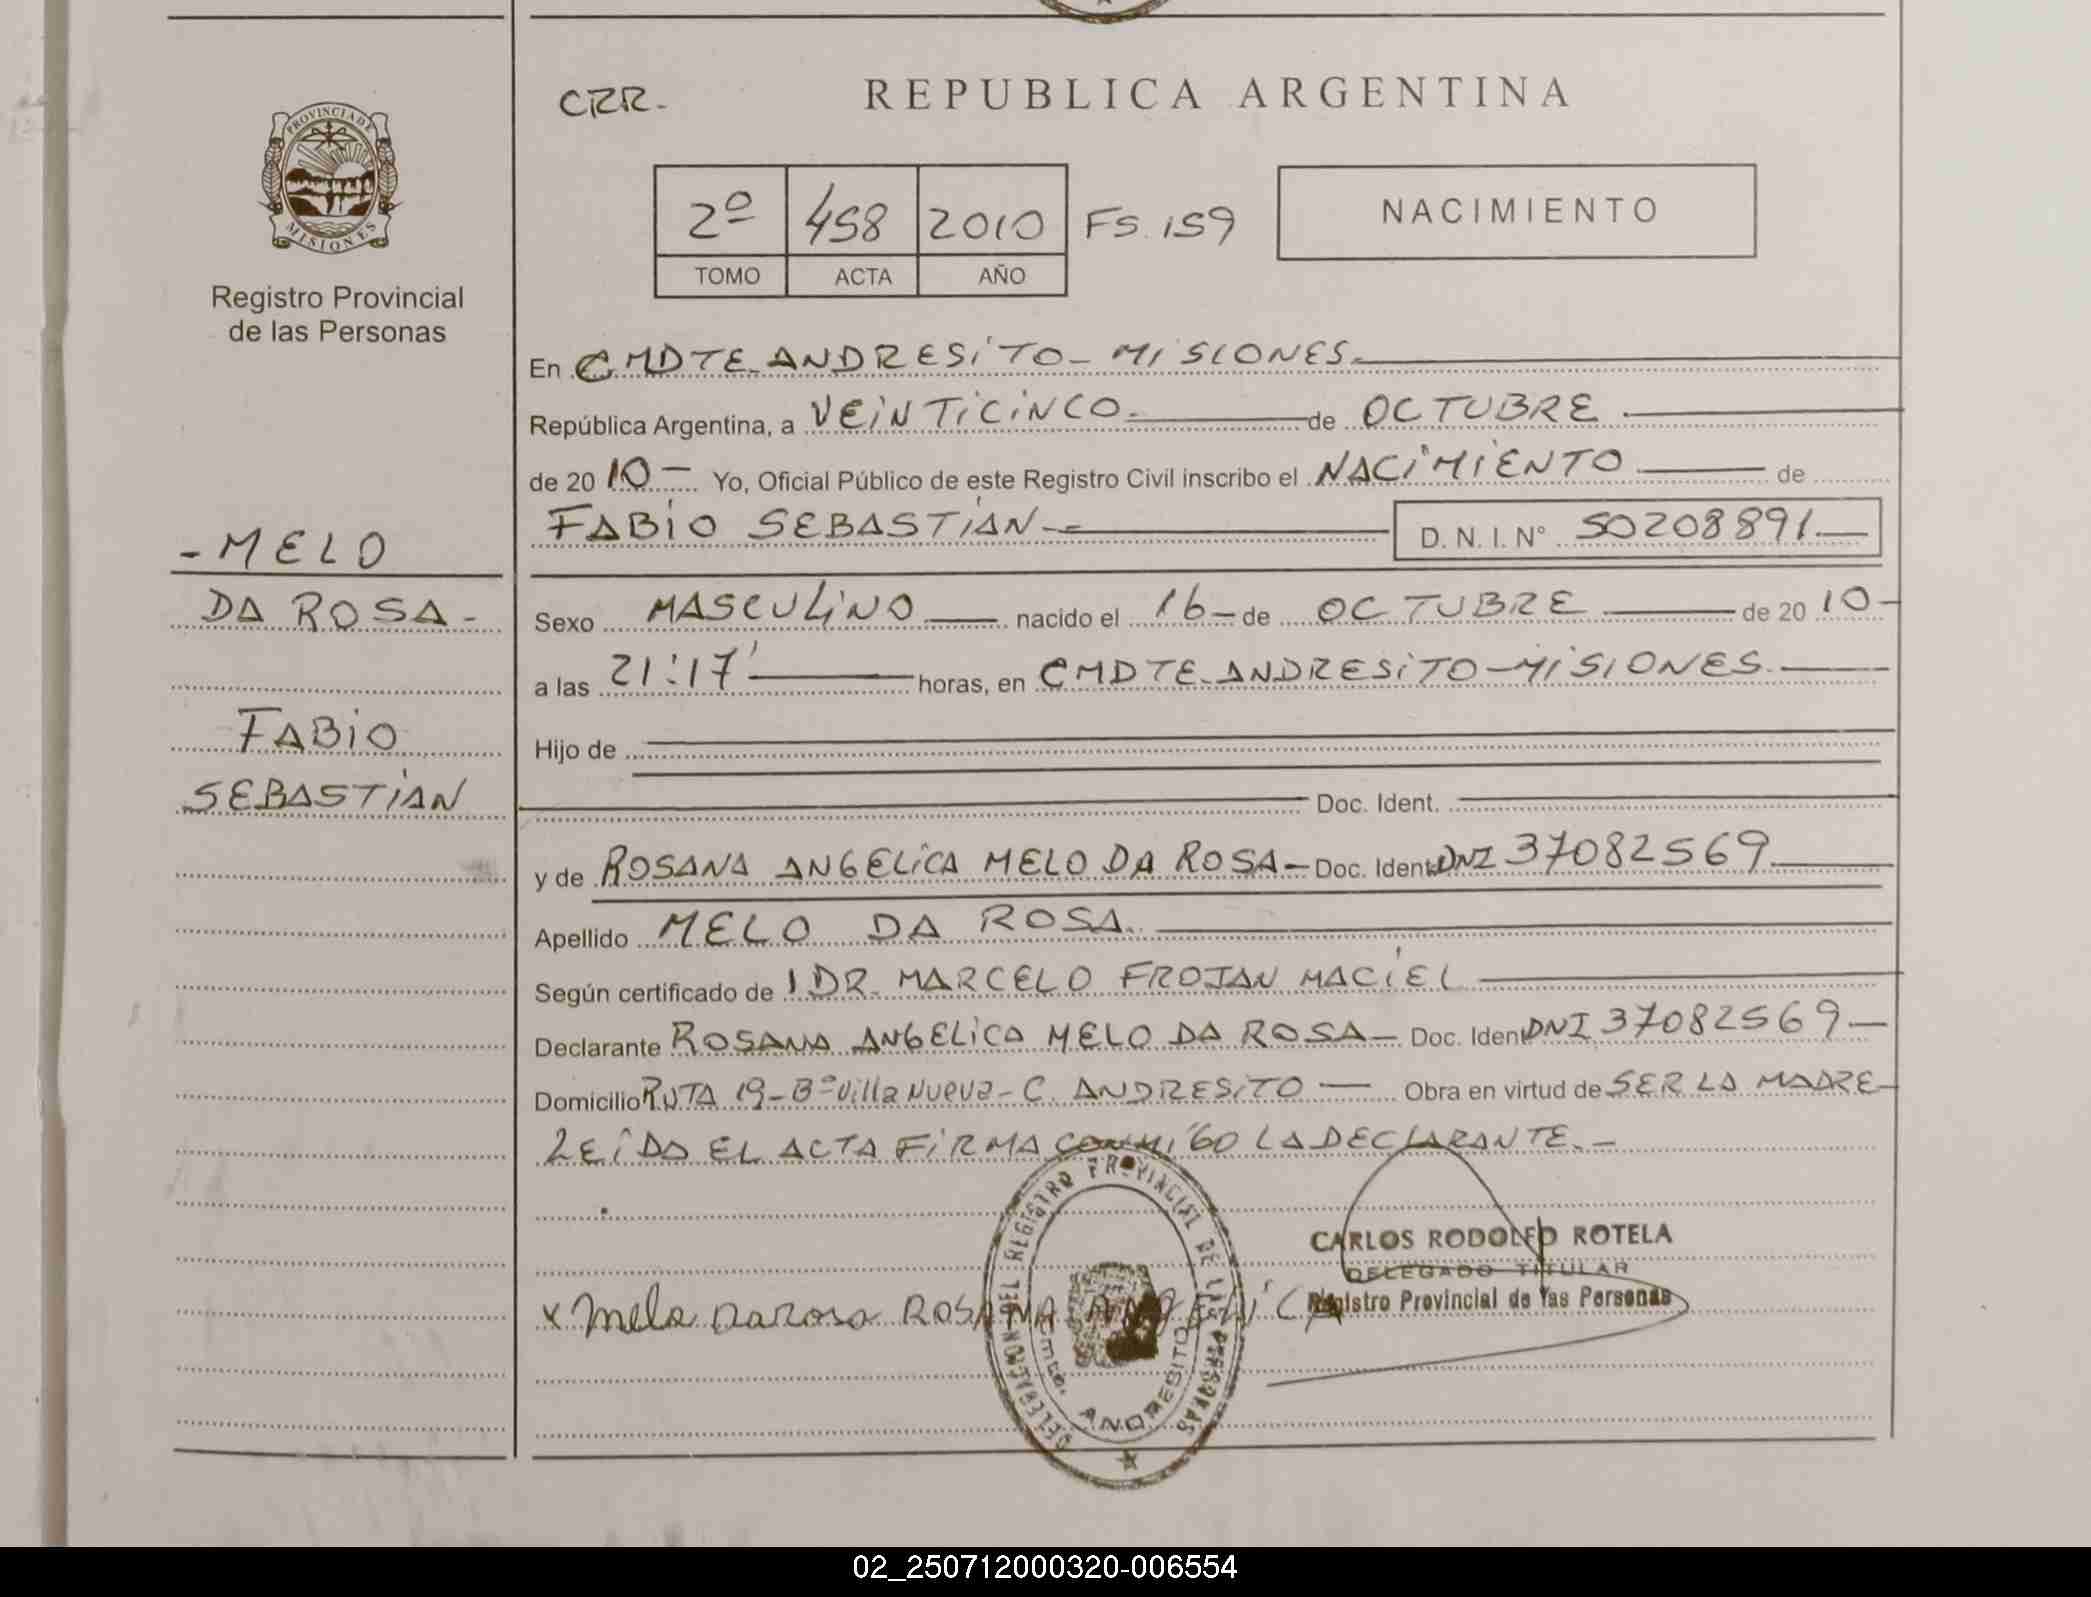 CRR-
REPUBLICA ARGENTINA
PROVINCIA DE MISIONES
Registro Provincial
de las Personas
2º 458 2010 FS. 159
TOMO ACTA AÑO
NACIMIENTO
En CMDTE ANDRESITO - MISIONES.
República Argentina, a VEINTICINCO. de OCTUBRE
de 20 10 - Yo, Oficial Público de este Registro Civil inscribo el NACIMIENTO de
FABIO SEBASTIAN - D. N. I. N° 50208891
- MELO
DA ROSA -
FABIO
SEBASTIAN
Sexo MASCULINO nacido el 16 - de OCTUBRE de 20 10 -
a las 21:17' horas, en CMDTE ANDRESITO - MISIONES.
Hijo de
Doc. Ident.
y de ROSANA ANGELICA MELO DA ROSA - Doc. Ident. DNI 37082569
Apellido MELO DA ROSA.
Según certificado de 1 DR. MARCELO FROJAN MACIEL
Declarante ROSANA ANGELICA MELO DA ROSA - Doc. Ident. DNI 37082569 -
Domicilio RUTA 19 - Bº Villa Nueva - C. ANDRESITO - Obra en virtud de SER LA MADRE -
LEIDO EL ACTA FIRMA CONMIGO LA DECLARANTE. -
DELEGACION DEL REGISTRO PROVINCIAL DE LAS PERSONAS
Cmte. ANDRESITO
CARLOS RODOLFO ROTELA
DELEGADO TITULAR
Registro Provincial de las Personas
x Melo Darosa ROSANA ANGELICA
02_250712000320-006554